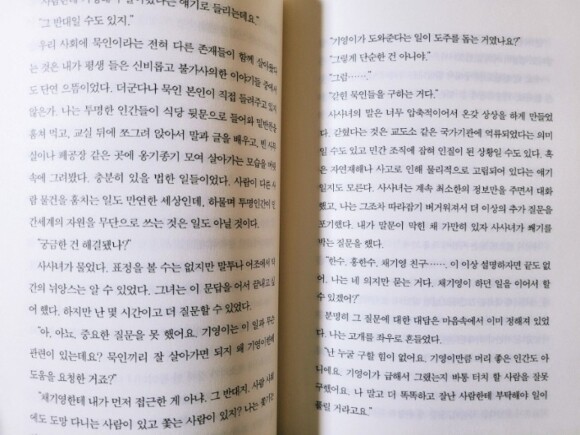 얘기로 들리는데요."
"그 반대일 수도 있지."
우리 사회에 묵인이라는 전혀 다른 존재들이 함께 살아왔다
는 것은 내가 평생 들은 신비롭고 불가사의한 이야기들 중에서
도 단연 으뜸이었다. 더군다나 묵인 본인이 직접 들려주고 있지
않은가. 나는 투명한 인간들이 식당 뒷문으로 들어와 밑반찬을
훔쳐 먹고, 교실 뒤에 쪼그려 앉아서 말과 글을 배우고, 빈 사무
실이나 폐공장 같은 곳에 옹기종기 모여 살아가는 모습을 머릿
속에 그려봤다. 충분히 있을 법한 일들이었다. 사람이 다른 사
람 물건을 훔치는 일도 만연한 세상인데, 하물며 투명인간이 인
간세계의 자원을 무단으로 쓰는 것은 일도 아닐 것이다.
"궁금한 건 해결됐나?"
사사녀가 물었다. 표정을 볼 수는 없지만 말투나 어조에서 약
간의 뉘앙스는 알 수 있었다. 그녀는 이 문답을 어서 끝내고 싶
어 했다. 하지만 난 몇 시간이고 더 질문할 수 있었다.
"아, 아뇨. 중요한 질문을 못 했어요. 기영이는 이 일과 무슨
관련이 있는데요? 묵인끼리 잘 살아가면 되지 왜 기영이한테
도움을 요청한 거죠?"
"채기영한테 내가 먼저 접근한 게 아냐. 그 반대지. 사람 사회
에도 도망 다니는 사람이 있고 쫓는 사람이 있지? 나는 쫓기는
"기영이가 도와준다는 일이 도주를 돕는 거였나요?"
"그렇게 단순한 건 아니야."
"그럼……."
"갇힌 묵인들을 구하는 거다."
사사녀의 말은 너무 압축적이어서 온갖 상상을 하게 만들었
다. 갇혔다는 것은 교도소 같은 국가기관에 억류되었다는 의미
일 수도 있고 민간 조직에 잡혀 인질이 된 상황일 수도 있다. 혹
은 자연재해나 사고로 인해 물리적으로 고립되어 있다는 얘기
일지도 모른다. 사사녀는 계속 최소한의 정보만을 주면서 대화
했고, 나는 그조차 따라잡기 버거워져서 더 이상의 추가 질문을
포기했다. 내가 말문이 막힌 채 가만히 있자 사사녀가 쐐기를
박는 질문을 했다.
"한수, 홍한수, 채기영 친구……. 이 이상 설명하자면 끝도 없
어. 나는 네 의지만 묻는 거다. 채기영이 하던 일을 이어서 할
수 있겠어?"
분명히 그 질문에 대한 대답은 마음속에서 이미 정해져 있었
다. 나는 고개를 좌우로 흔들었다.
"난 누굴 구할 힘이 없어요. 기영이만큼 머리 좋은 인간도 아
니에요. 기영이가 급해서 그랬는지 바통 터치 할 사람을 잘못
구했어요. 나 말고 더 똑똑하고 잘난 사람한테 부탁해야 일이
풀릴 거라고요."